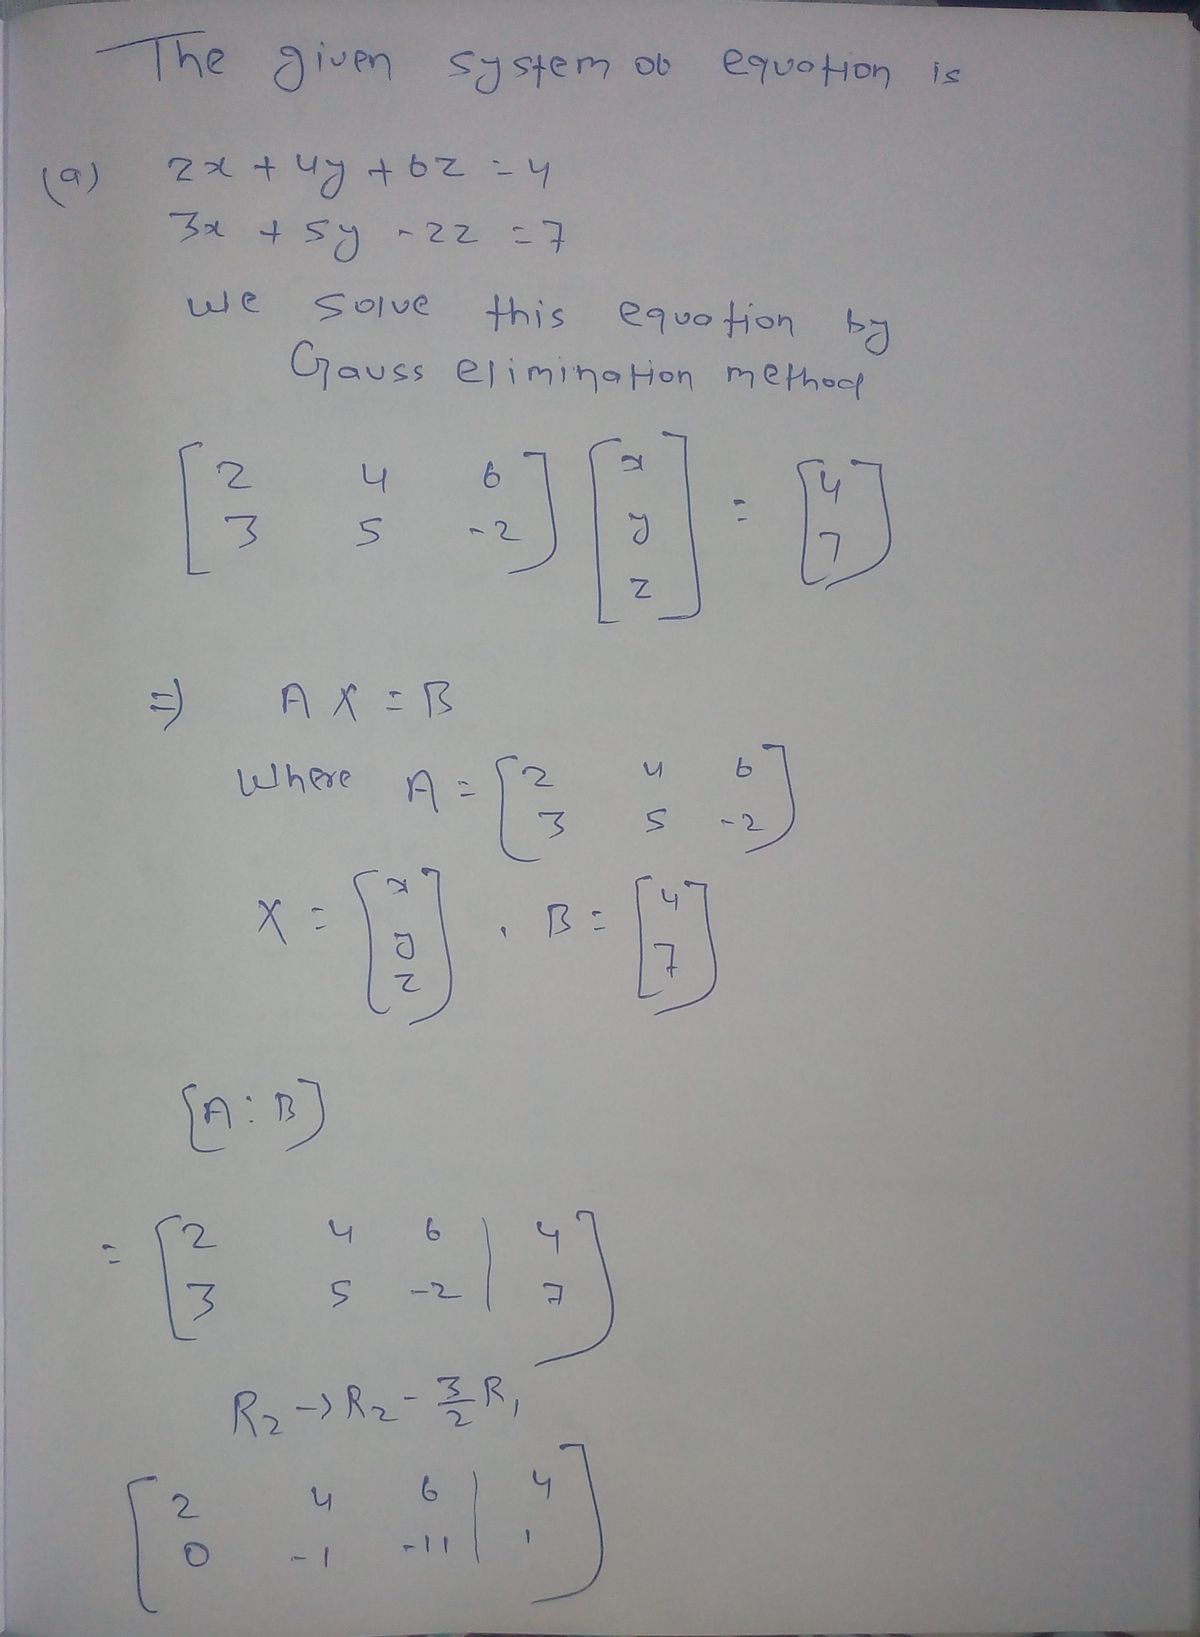 The given system of equation is
(a) 2x + 4y + 6z = 4
3x + 5y - 2z = 7
we solve this equation by
Gauss elimination method
[2 4 6] [x] = [4]
[3 5 -2] [y] [7]
[z]
=) A X = B
where A = [2 4 6]
[3 5 -2]
X = [x , B = [4
y 7]
z]
[A : B]
= [2 4 6 | 4]
[3 5 -2 | 7]
R2 -> R2 - 3/2 R1
[2 4 6 | 4]
[0 -1 -11 | 1]